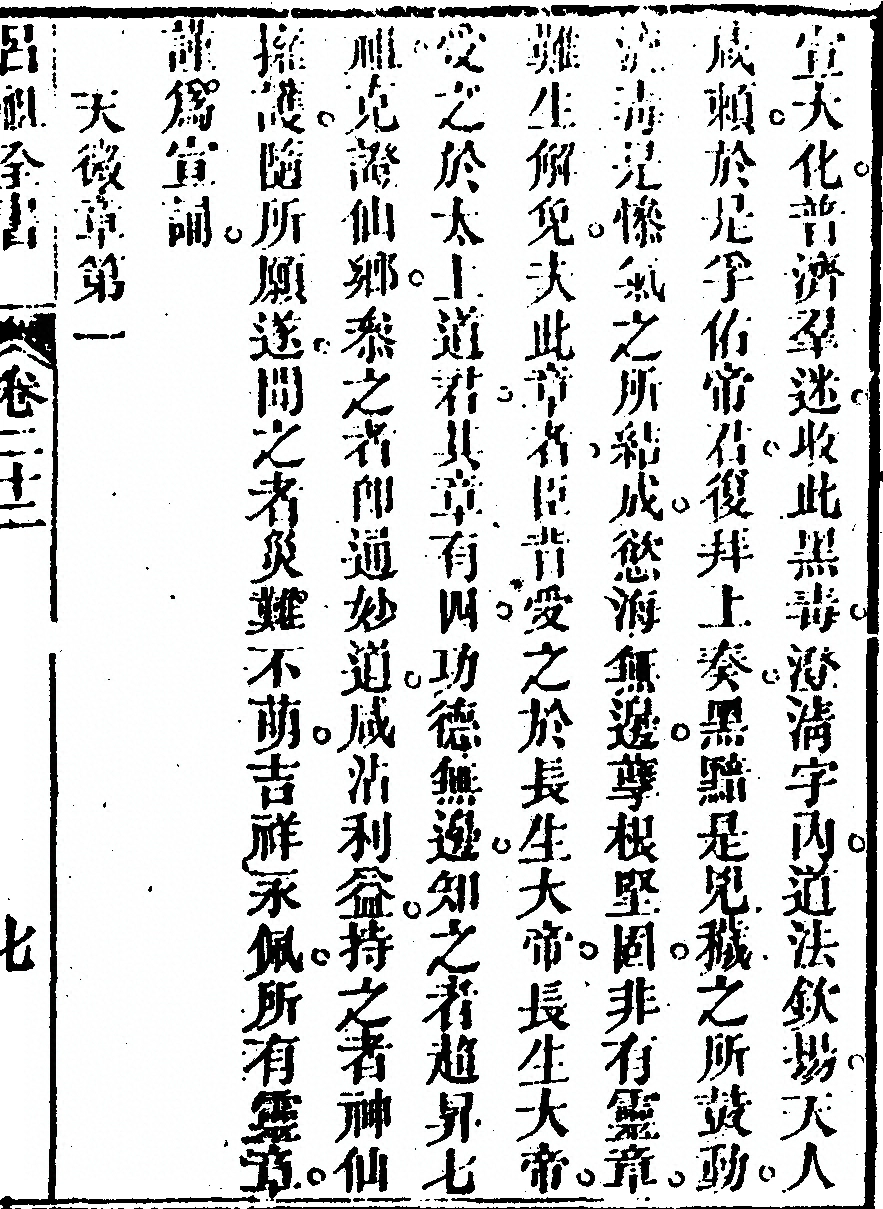 宣大化。普濟羣迷。收此黑毒。澄淸宇內。道法欽揚。天人
咸賴。於是孚佑帝君。復拜上奏。黑黯是兇穢之所鼓動。
流毒是慘氣之所結成。慾海無邊。孽根堅固。非有靈章。
難生解免。夫此章者。臣昔受之於長生大帝。長生大帝。
受之於太上道君。其章有四。功德無邊。知之者趙昇七
祖。克證仙鄉。叅之者卽通妙道。咸沾利益。持之者神仙
擁護。隨所願遂。聞之者災難不萌。吉祥永佩。所有靈章。
謹爲宣誦。
天微章第一
呂祖全書
卷二十二
七